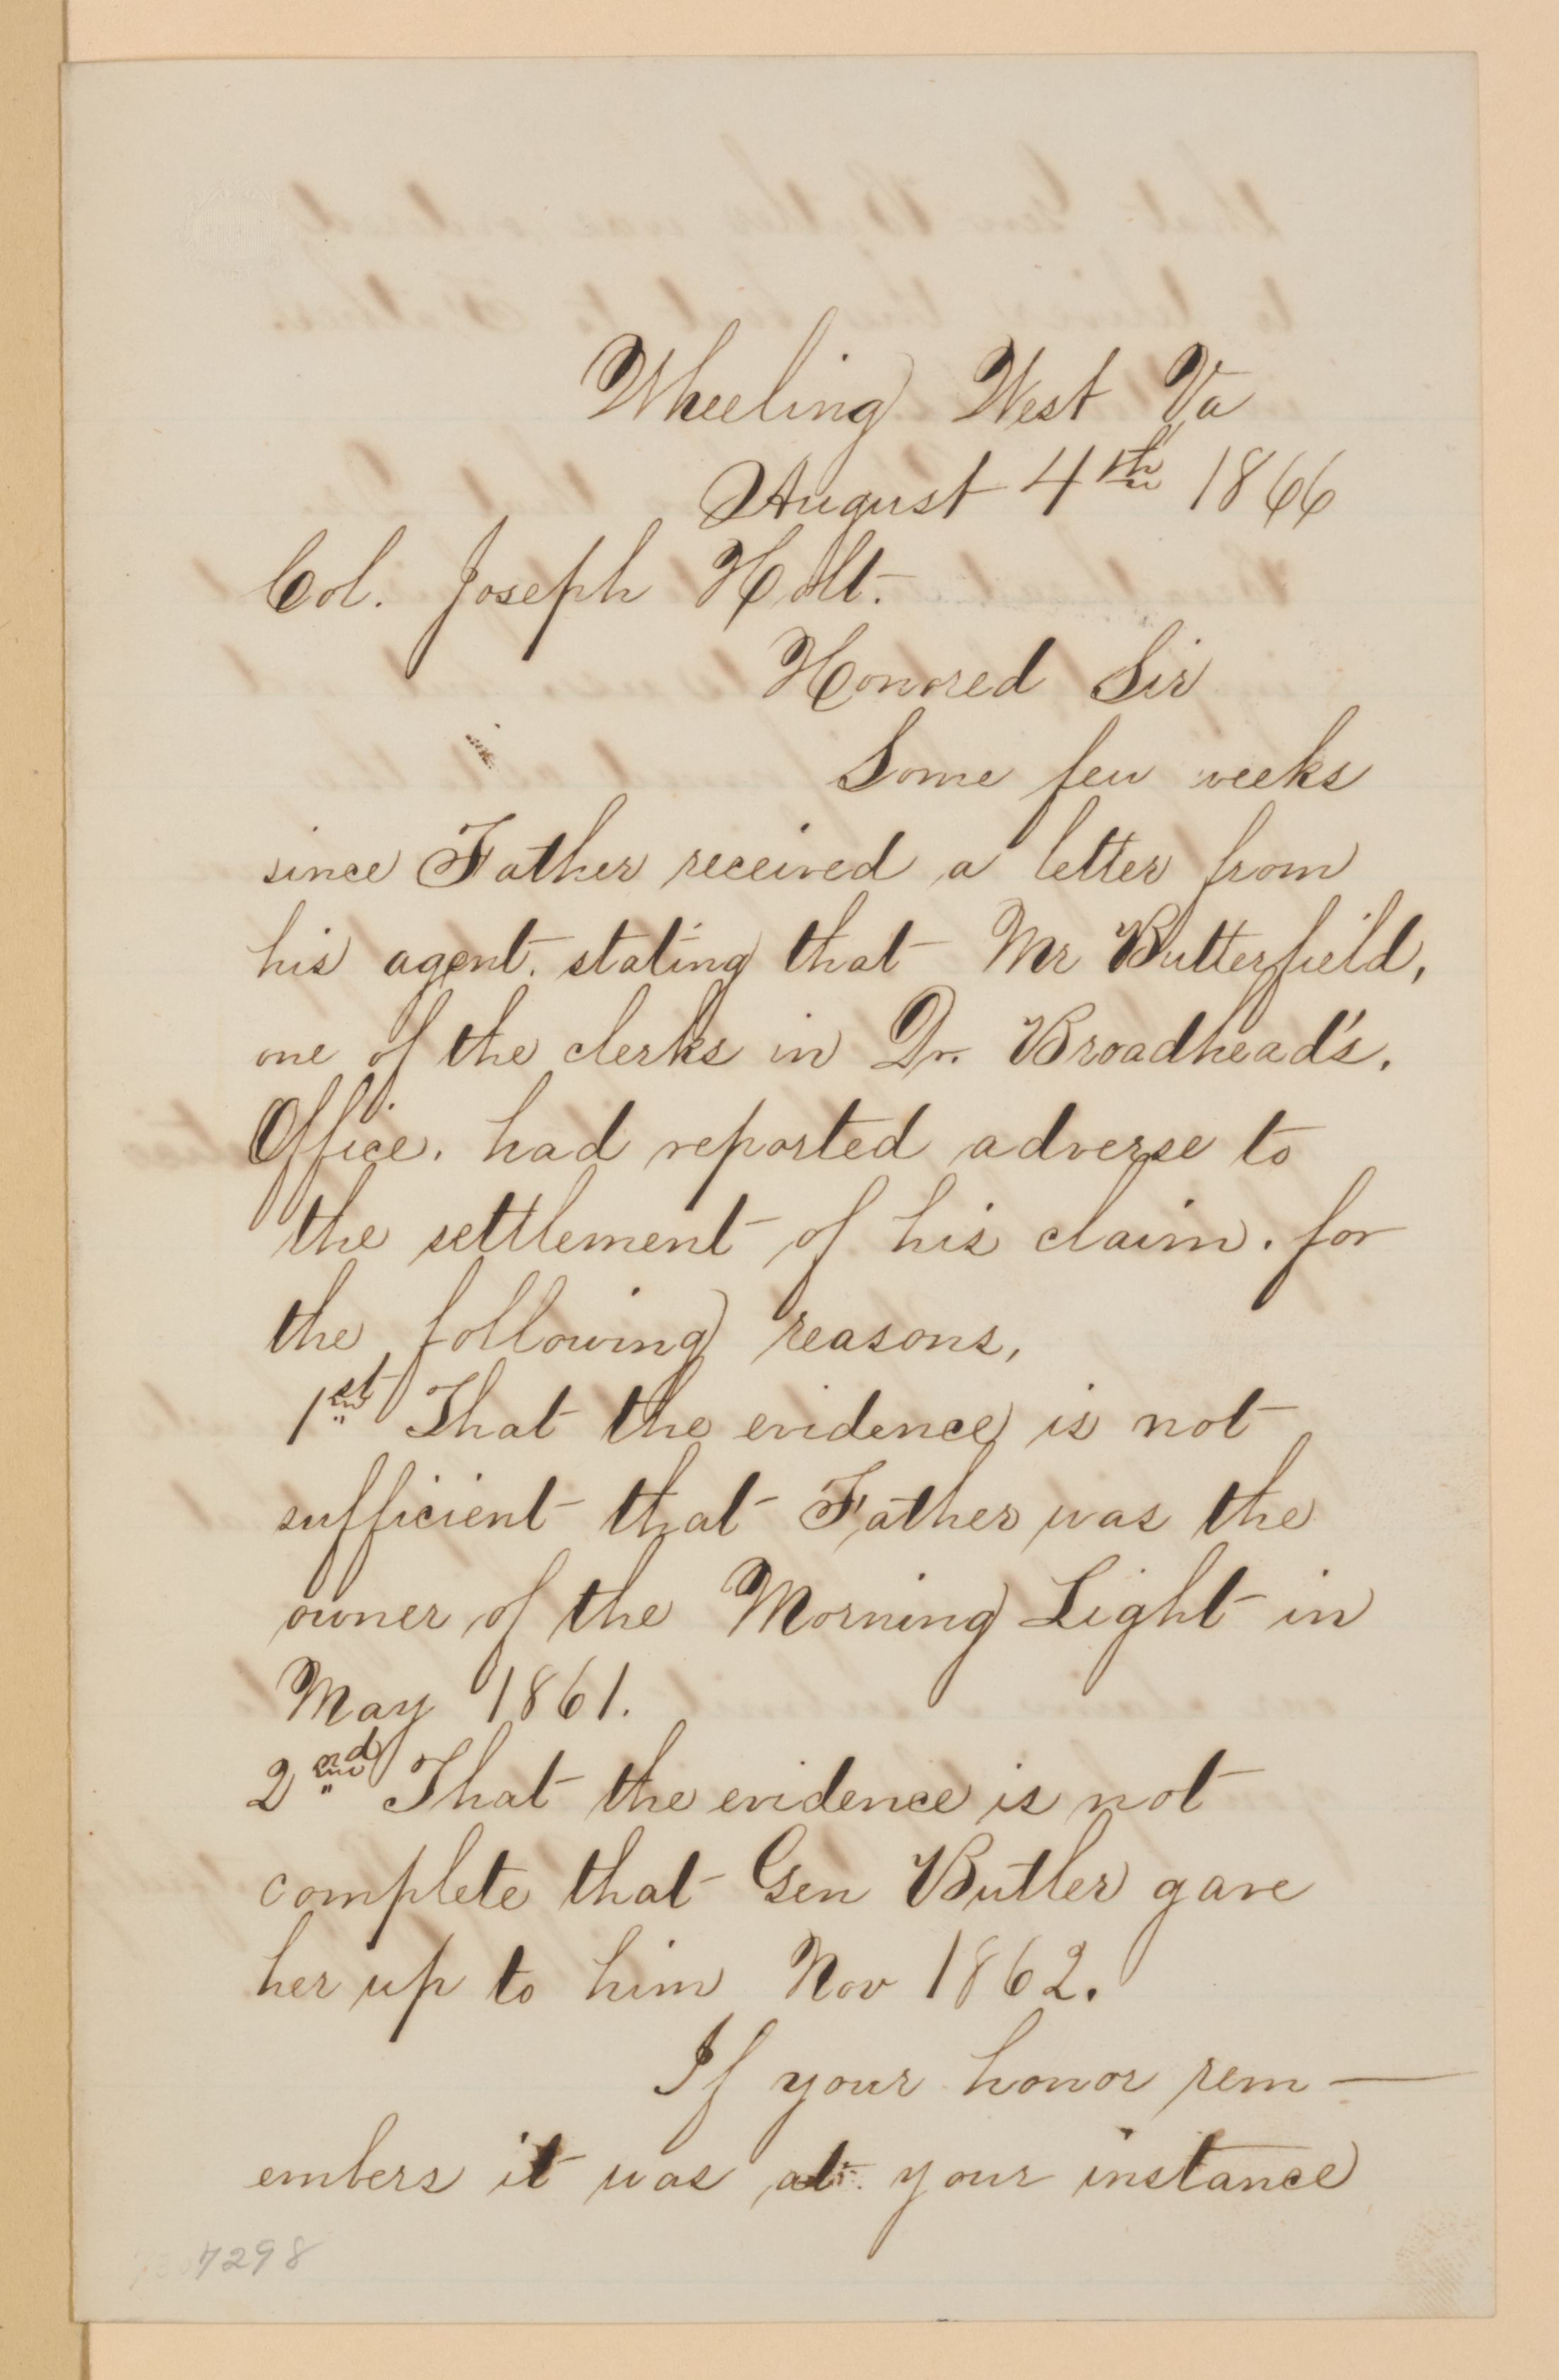 Wheeling West Va
August 4th 1866
Col. Joseph Holt.
Honored Sir
Some few weeks
since Father received a letter from
his agent. stating that Mr Butterfield,
one of the clerks in Dr. Broadhead's.
Office. had reported adverse to
the settlement of his claim. for
the following reasons,
1st That the evidence is not
sufficient that Father was the
owner of the Morning Light in
May 1861.
2nd That the evidence is not
complete that Gen Butler gave
her up to him Nov 1862.
If your honor rem—
embers it was at your instance
7298